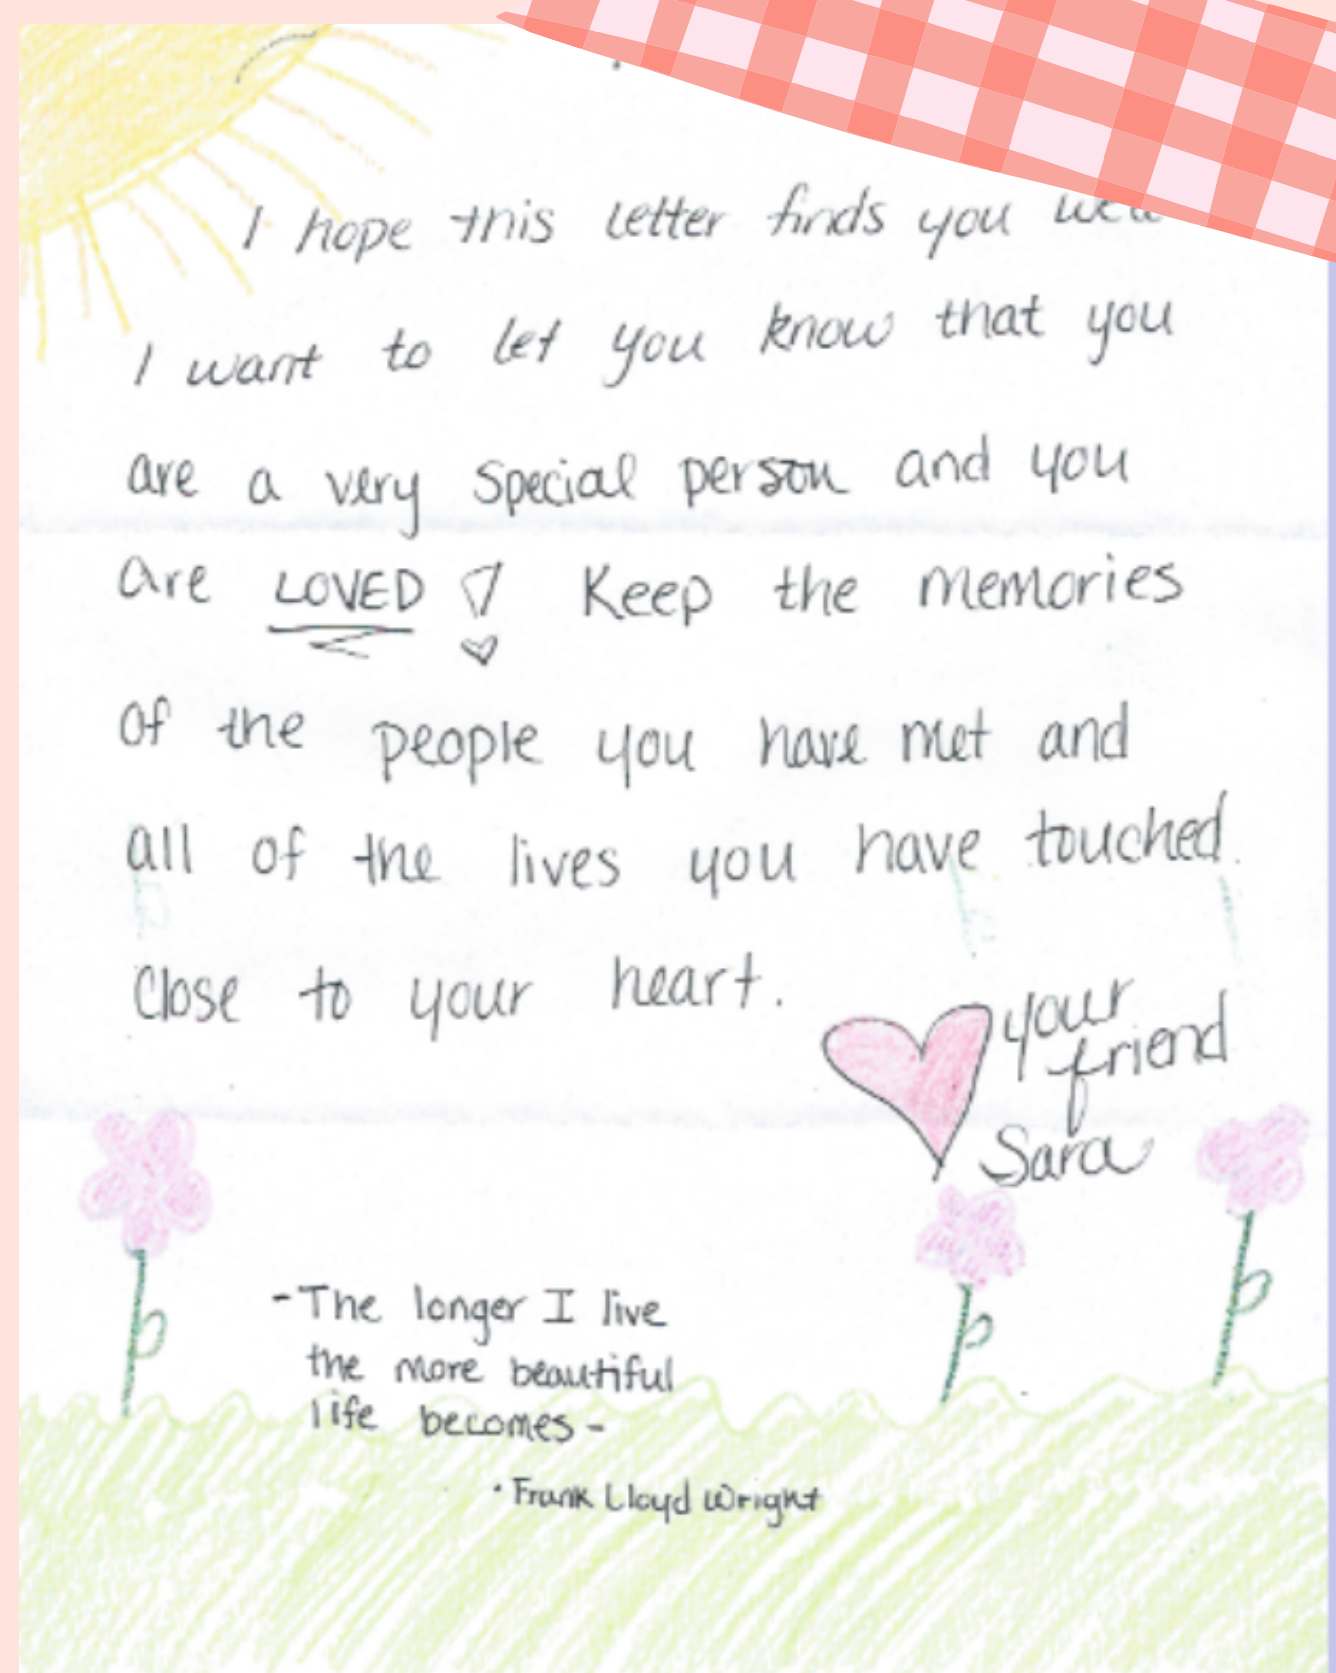 I hope this letter finds you well
I want to let you know that you
are a very special person and you
are LOVED! Keep the memories
of the people you have met and
all of the lives you have touched
close to your heart.
your
friend
Sara
-The longer I live
the more beautiful
life becomes-
·Frank Lloyd Wright